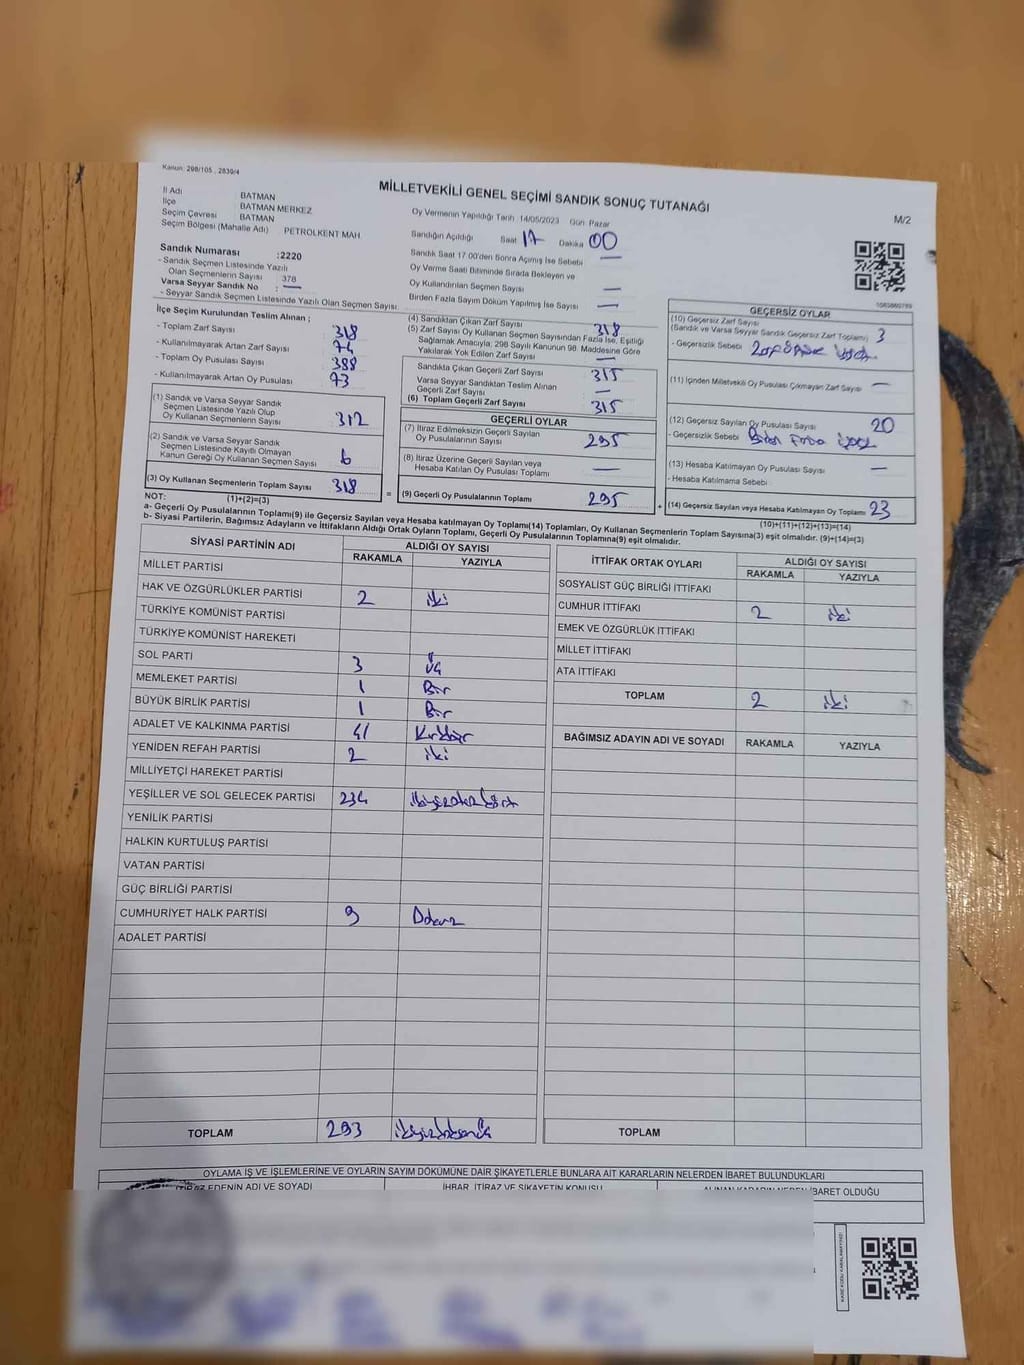 Kanun: 298/105 , 2839/4
MİLLETVEKİLİ GENEL SEÇİMİ SANDIK SONUÇ TUTANAĞI
M/2
İl Adı BATMAN
İlçe BATMAN MERKEZ
Seçim Çevresi BATMAN
Seçim Bölgesi (Mahalle Adı) PETROLKENT MAH.
Sandık Numarası :2220
- Sandık Seçmen Listesinde Yazılı
Olan Seçmenlerin Sayısı : 378
Varsa Seyyar Sandık No : —
- Seyyar Sandık Seçmen Listesinde Yazılı Olan Seçmen Sayısı:
Oy Vermenin Yapıldığı Tarih 14/05/2023 Gün Pazar
Sandığın Açıldığı Saat 17 Dakika 00
Sandık Saat 17.00'den Sonra Açılmış İse Sebebi —
Oy Verme Saati Bitiminde Sırada Bekleyen ve
Oy Kullandırılan Seçmen Sayısı —
Birden Fazla Sayım Döküm Yapılmış İse Sayısı —
İlçe Seçim Kurulundan Teslim Alınan ;
- Toplam Zarf Sayısı 318
- Kullanılmayarak Artan Zarf Sayısı 74
- Toplam Oy Pusulası Sayısı 388
- Kullanılmayarak Artan Oy Pusulası 73
(1) Sandık ve Varsa Seyyar Sandık
Seçmen Listesinde Yazılı Olup
Oy Kullanan Seçmenlerin Sayısı 312
(2) Sandık ve Varsa Seyyar Sandık
Seçmen Listesinde Kayıtlı Olmayan
Kanun Gereği Oy Kullanan Seçmen Sayısı 6
(3) Oy Kullanan Seçmenlerin Toplam Sayısı 318
(1)+(2)=(3)
(4) Sandıktan Çıkan Zarf Sayısı 318
(5) Zarf Sayısı Oy Kullanan Seçmen Sayısından Fazla İse, Eşitliği
Sağlamak Amacıyla, 298 Sayılı Kanunun 98. Maddesine Göre
Yakılarak Yok Edilen Zarf Sayısı —
Sandıkta Çıkan Geçerli Zarf Sayısı 315
Varsa Seyyar Sandıktan Teslim Alınan
Geçerli Zarf Sayısı —
(6) Toplam Geçerli Zarf Sayısı 315
GEÇERLİ OYLAR
(7) İtiraz Edilmeksizin Geçerli Sayılan
Oy Pusulalarının Sayısı 295
(8) İtiraz Üzerine Geçerli Sayılan veya
Hesaba Katılan Oy Pusulası Toplamı —
= (9) Geçerli Oy Pusulalarının Toplamı 295
1083860789
GEÇERSİZ OYLAR
(10) Geçersiz Zarf Sayısı
(Sandık ve Varsa Seyyar Sandık Geçersiz Zarf Toplamı) 3
- Geçersizlik Sebebi
(11) İçinden Milletvekili Oy Pusulası Çıkmayan Zarf Sayısı —
(12) Geçersiz Sayılan Oy Pusulası Sayısı 20
- Geçersizlik Sebebi
(13) Hesaba Katılmayan Oy Pusulası Sayısı —
- Hesaba Katılmama Sebebi
+ (14) Geçersiz Sayılan veya Hesaba Katılmayan Oy Toplamı 23
(10)+(11)+(12)+(13)=(14)
NOT:
a- Geçerli Oy Pusulası Toplamı(9) ile Geçersiz Sayılan veya Hesaba katılmayan Oy Toplamı(14) Toplamları, Oy Kullanan Seçmenlerin Toplam Sayısına(3) eşit olmalıdır. (9)+(14)=(3)
b- Siyasi Partilerin, Bağımsız Adayların ve İttifakların Aldığı Ortak Oyların Toplamı, Geçerli Oy Pusulalarının Toplamına(9) eşit olmalıdır.
SİYASİ PARTİNİN ADI ALDIĞI OY SAYISI
RAKAMLA YAZIYLA
MİLLET PARTİSİ
HAK VE ÖZGÜRLÜKLER PARTİSİ 2 iki
TÜRKİYE KOMÜNİST PARTİSİ
TÜRKİYE KOMÜNİST HAREKETİ
SOL PARTİ 3 üç
MEMLEKET PARTİSİ 1 Bir
BÜYÜK BİRLİK PARTİSİ 1 Bir
ADALET VE KALKINMA PARTİSİ 41 Kırkbir
YENİDEN REFAH PARTİSİ 2 iki
MİLLİYETÇİ HAREKET PARTİSİ
YEŞİLLER VE SOL GELECEK PARTİSİ 234 ikiyüzotuzdört
YENİLİK PARTİSİ
HALKIN KURTULUŞ PARTİSİ
VATAN PARTİSİ
GÜÇ BİRLİĞİ PARTİSİ
CUMHURİYET HALK PARTİSİ 9 Dokuz
ADALET PARTİSİ
TOPLAM 293 ikiyüzdoksanüç
İTTİFAK ORTAK OYLARI ALDIĞI OY SAYISI
RAKAMLA YAZIYLA
SOSYALİST GÜÇ BİRLİĞİ İTTİFAKI
CUMHUR İTTİFAKI 2 iki
EMEK VE ÖZGÜRLÜK İTTİFAKI
MİLLET İTTİFAKI
ATA İTTİFAKI
TOPLAM 2 iki
BAĞIMSIZ ADAYIN ADI VE SOYADI RAKAMLA YAZIYLA
TOPLAM
OYLAMA İŞ VE İŞLEMLERİNE VE OYLARIN SAYIM DÖKÜMÜNE DAİR ŞİKAYETLERLE BUNLARA AİT KARARLARIN NELERDEN İBARET BULUNDUKLARI
İTİRAZ EDENİN ADI VE SOYADI
İHBAR, İTİRAZ VE ŞİKAYETİN KONUSU
ALINAN KARARIN NEDEN İBARET OLDUĞU